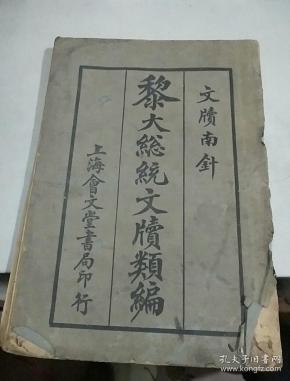 文牘南針
黎大総統文牘類編
上海會文堂書局印行
孔夫子旧书网